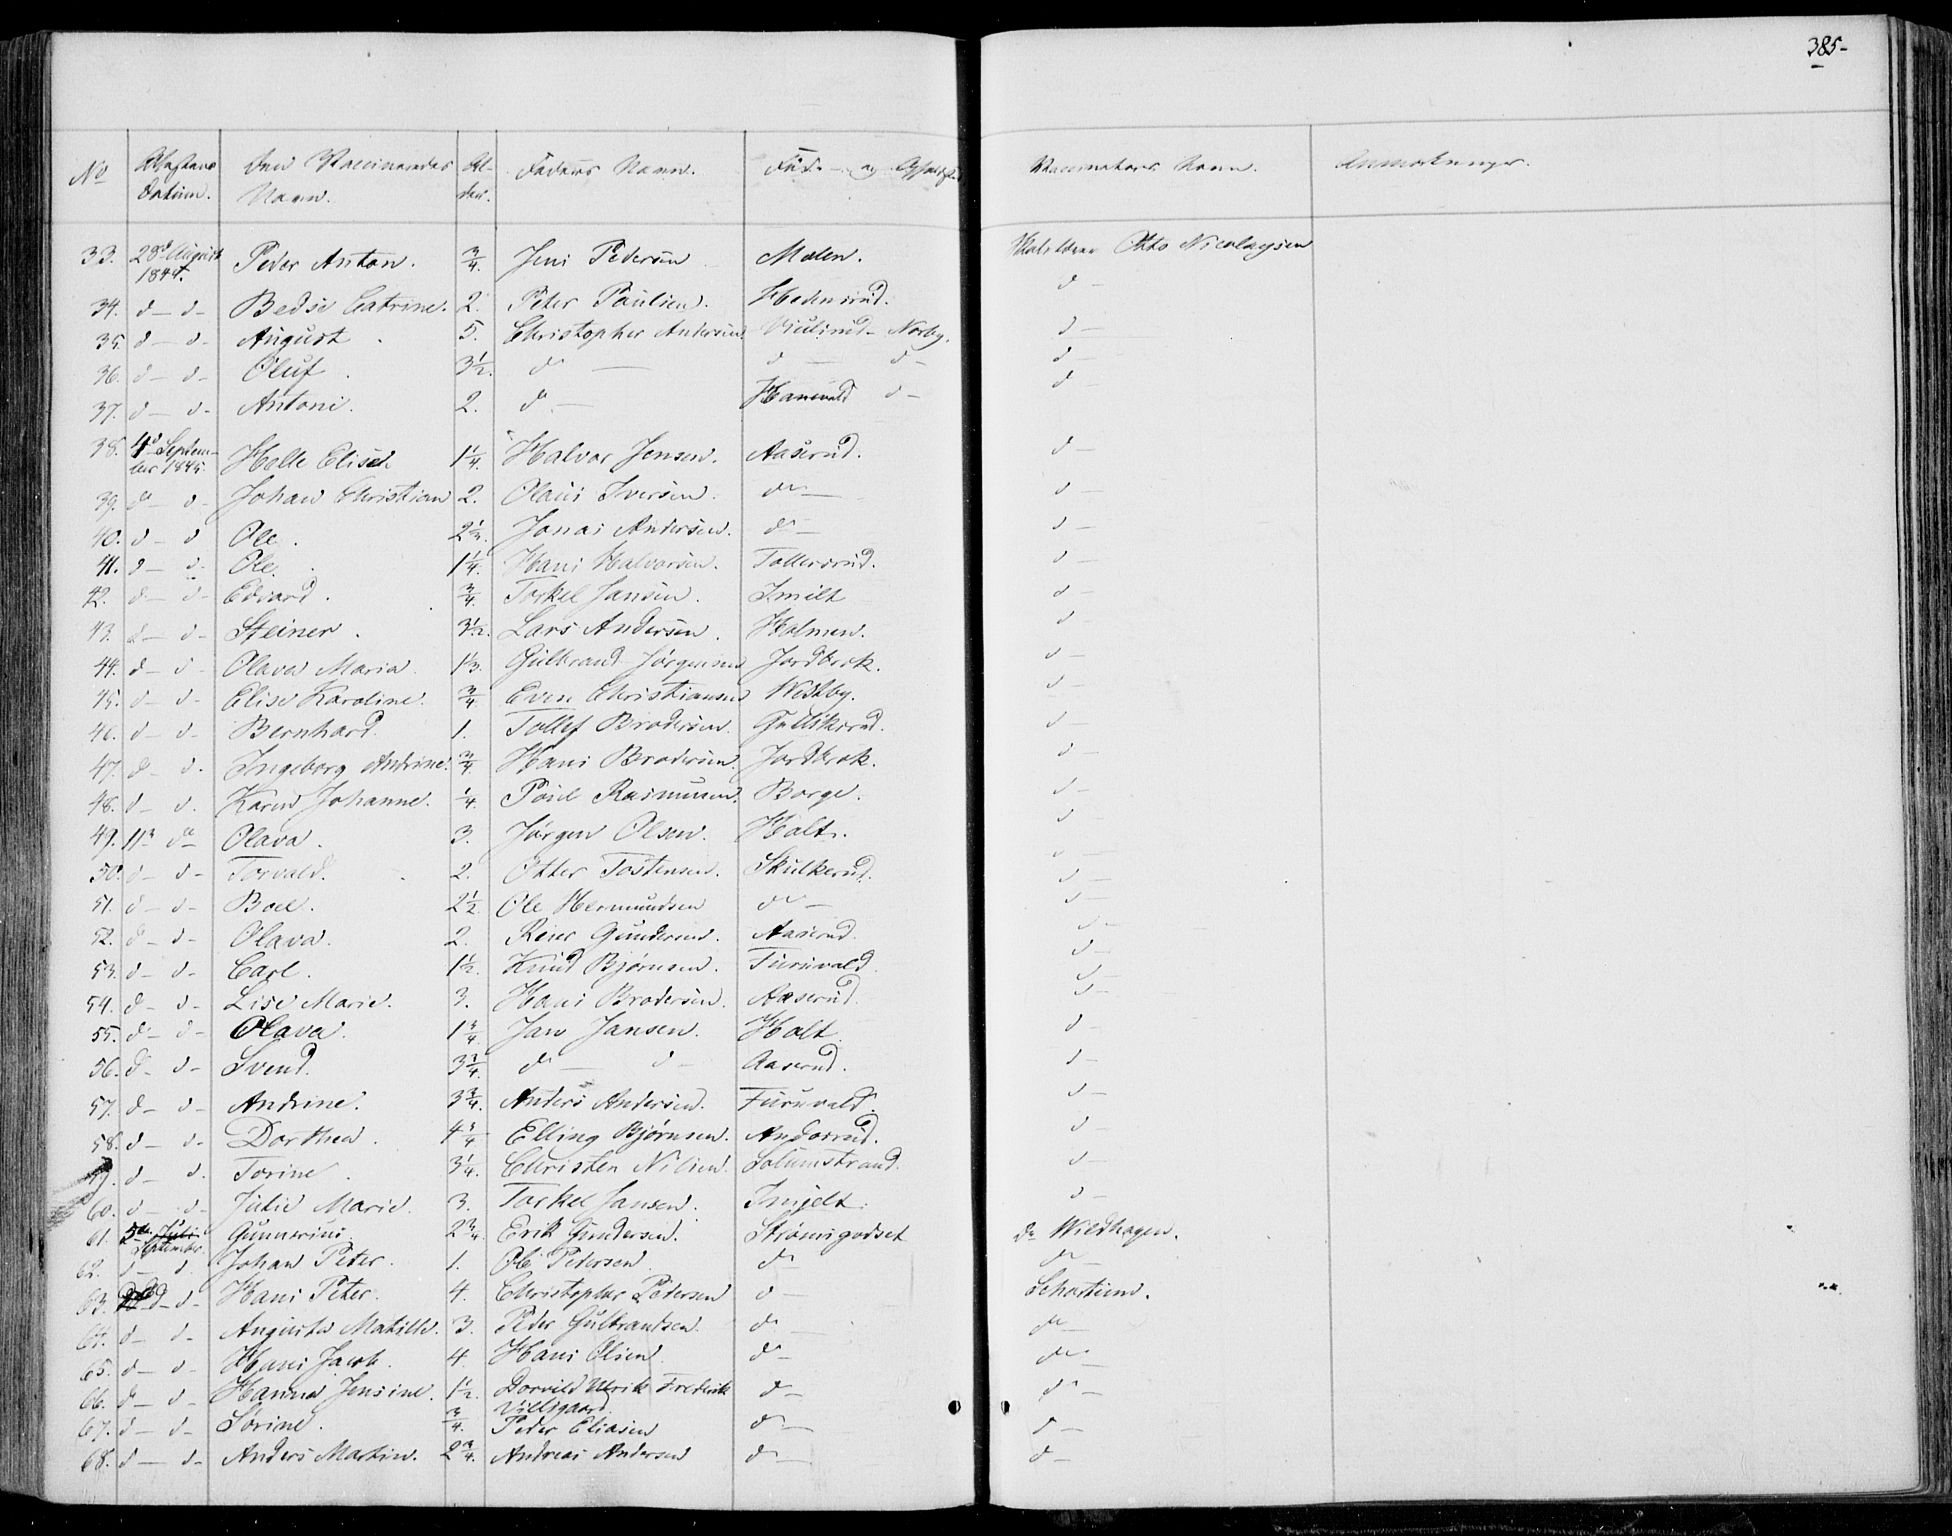 385-
No Attestens Datum. Den Vaccineredes Navn. Al- der. Faders Navn. Føde- og Vaccinateurs Navn. Anmærkninger.
33. 28d August 1844. Peder Anton. 3/4. Jens Pedersen Molen. Otto Nicolaysen
34. d- d- Bedse Catrine. 2. Peter Paulsen. Hedensrud. d-
35. d- d- August. 5. Christopher Andersen Norby. d-
36. d- d- Oluf. 3 1/2. do- d- d- d-
37. d- d- Antoni. 2. do- d- d-
38. 4d September 1845. Helle Elisek 1 1/4. Halvor Jensen. Aaserud. d-
39. do- d- Johan Christian 2. Olaus Iversen. do- d
40. d- d Ole. Jonas Andersen. do- d-
41. d- d- Ole. 1 1/4. Hans Halvorsen. Tollersrud. d-
42. d- d- Edvard. 3/4. Torkel Jansen. d-
43. d- d- Steiner. 3 1/2. Lars Andersen. Holmen. d-
44. d- d- Olava Maria 1 1/3. Gulbrand Jørgensen Jordbrek. d-
45. d- d- Elise Karoline. 3/4. Even Christiansen Westby. d-
46. d- d- Bernhard 1. Tollef Brodersen. Gulliksrud. d-
47. d- d- Ingeborg Andrine. 3/4. Hans Brodersen. Jordbrek. d-
48. d- d. Karen Johanne. 1/4. Poul Rasmussen. Borge. d-
49. 11d do Olava. 3. Jørgen Olsen. Holt. d-
50. d- d- Torvald. 2. Otter Tostensen. Skulkerud. d-
51. d- d- Boel. 2 1/2. Ole Hermundsen do- d-
52. d- d- Olava. 2. Reier Gundersen. Aaserud. d-
53. d- d- Carl. 1 1/2. Knud Bjørnsen. Furuvald. d-
54. d- d- Lise Marie. 3. Hans Brodersen. Aaserud. d-
55. d- d- Olava. 1 3/4. Jan Jansen. Holt. d-
56. d- d- Svend. 3 3/4. do- d- Aaserud. d-
57. d- d- Andrine. 3 3/4. Anders Andersen. Furuvald. d-
58. d- d- Dorthea. 4 3/4 Elling Bjørnsen. Andorsrud. d-
59. d- d. Torine. 3 1/4. Christen Nilsen. Solumstrand. d-
60. d- d- Julie Marie. 3. Torkel Jansen. d-
61. 5te Juli September. Gunnerius. 2 3/4. Erik Gundersen. Strømsgodset do Wildhagen.
62. d- d. Johan Peter. 1. Ole Pedersen. do do
63. d- d- Hans Peter. 4. Christopher Pedersen d- Schartum.
64. d- d- Augusta Mathilde. 3. Peder Gulbrandsen. do do-
65. d- d- Hans Jacob. 4. Hans Olsen. do- do-
66. d- d- Hanna Jensine. 1 1/2. Ulrik Frederik do- do-
67. d- d- Sørine. 3/4. Peder Eliasen do- d-
68. d- d- Anders Martin. 2 3/4. Andreas Andersen do- d-